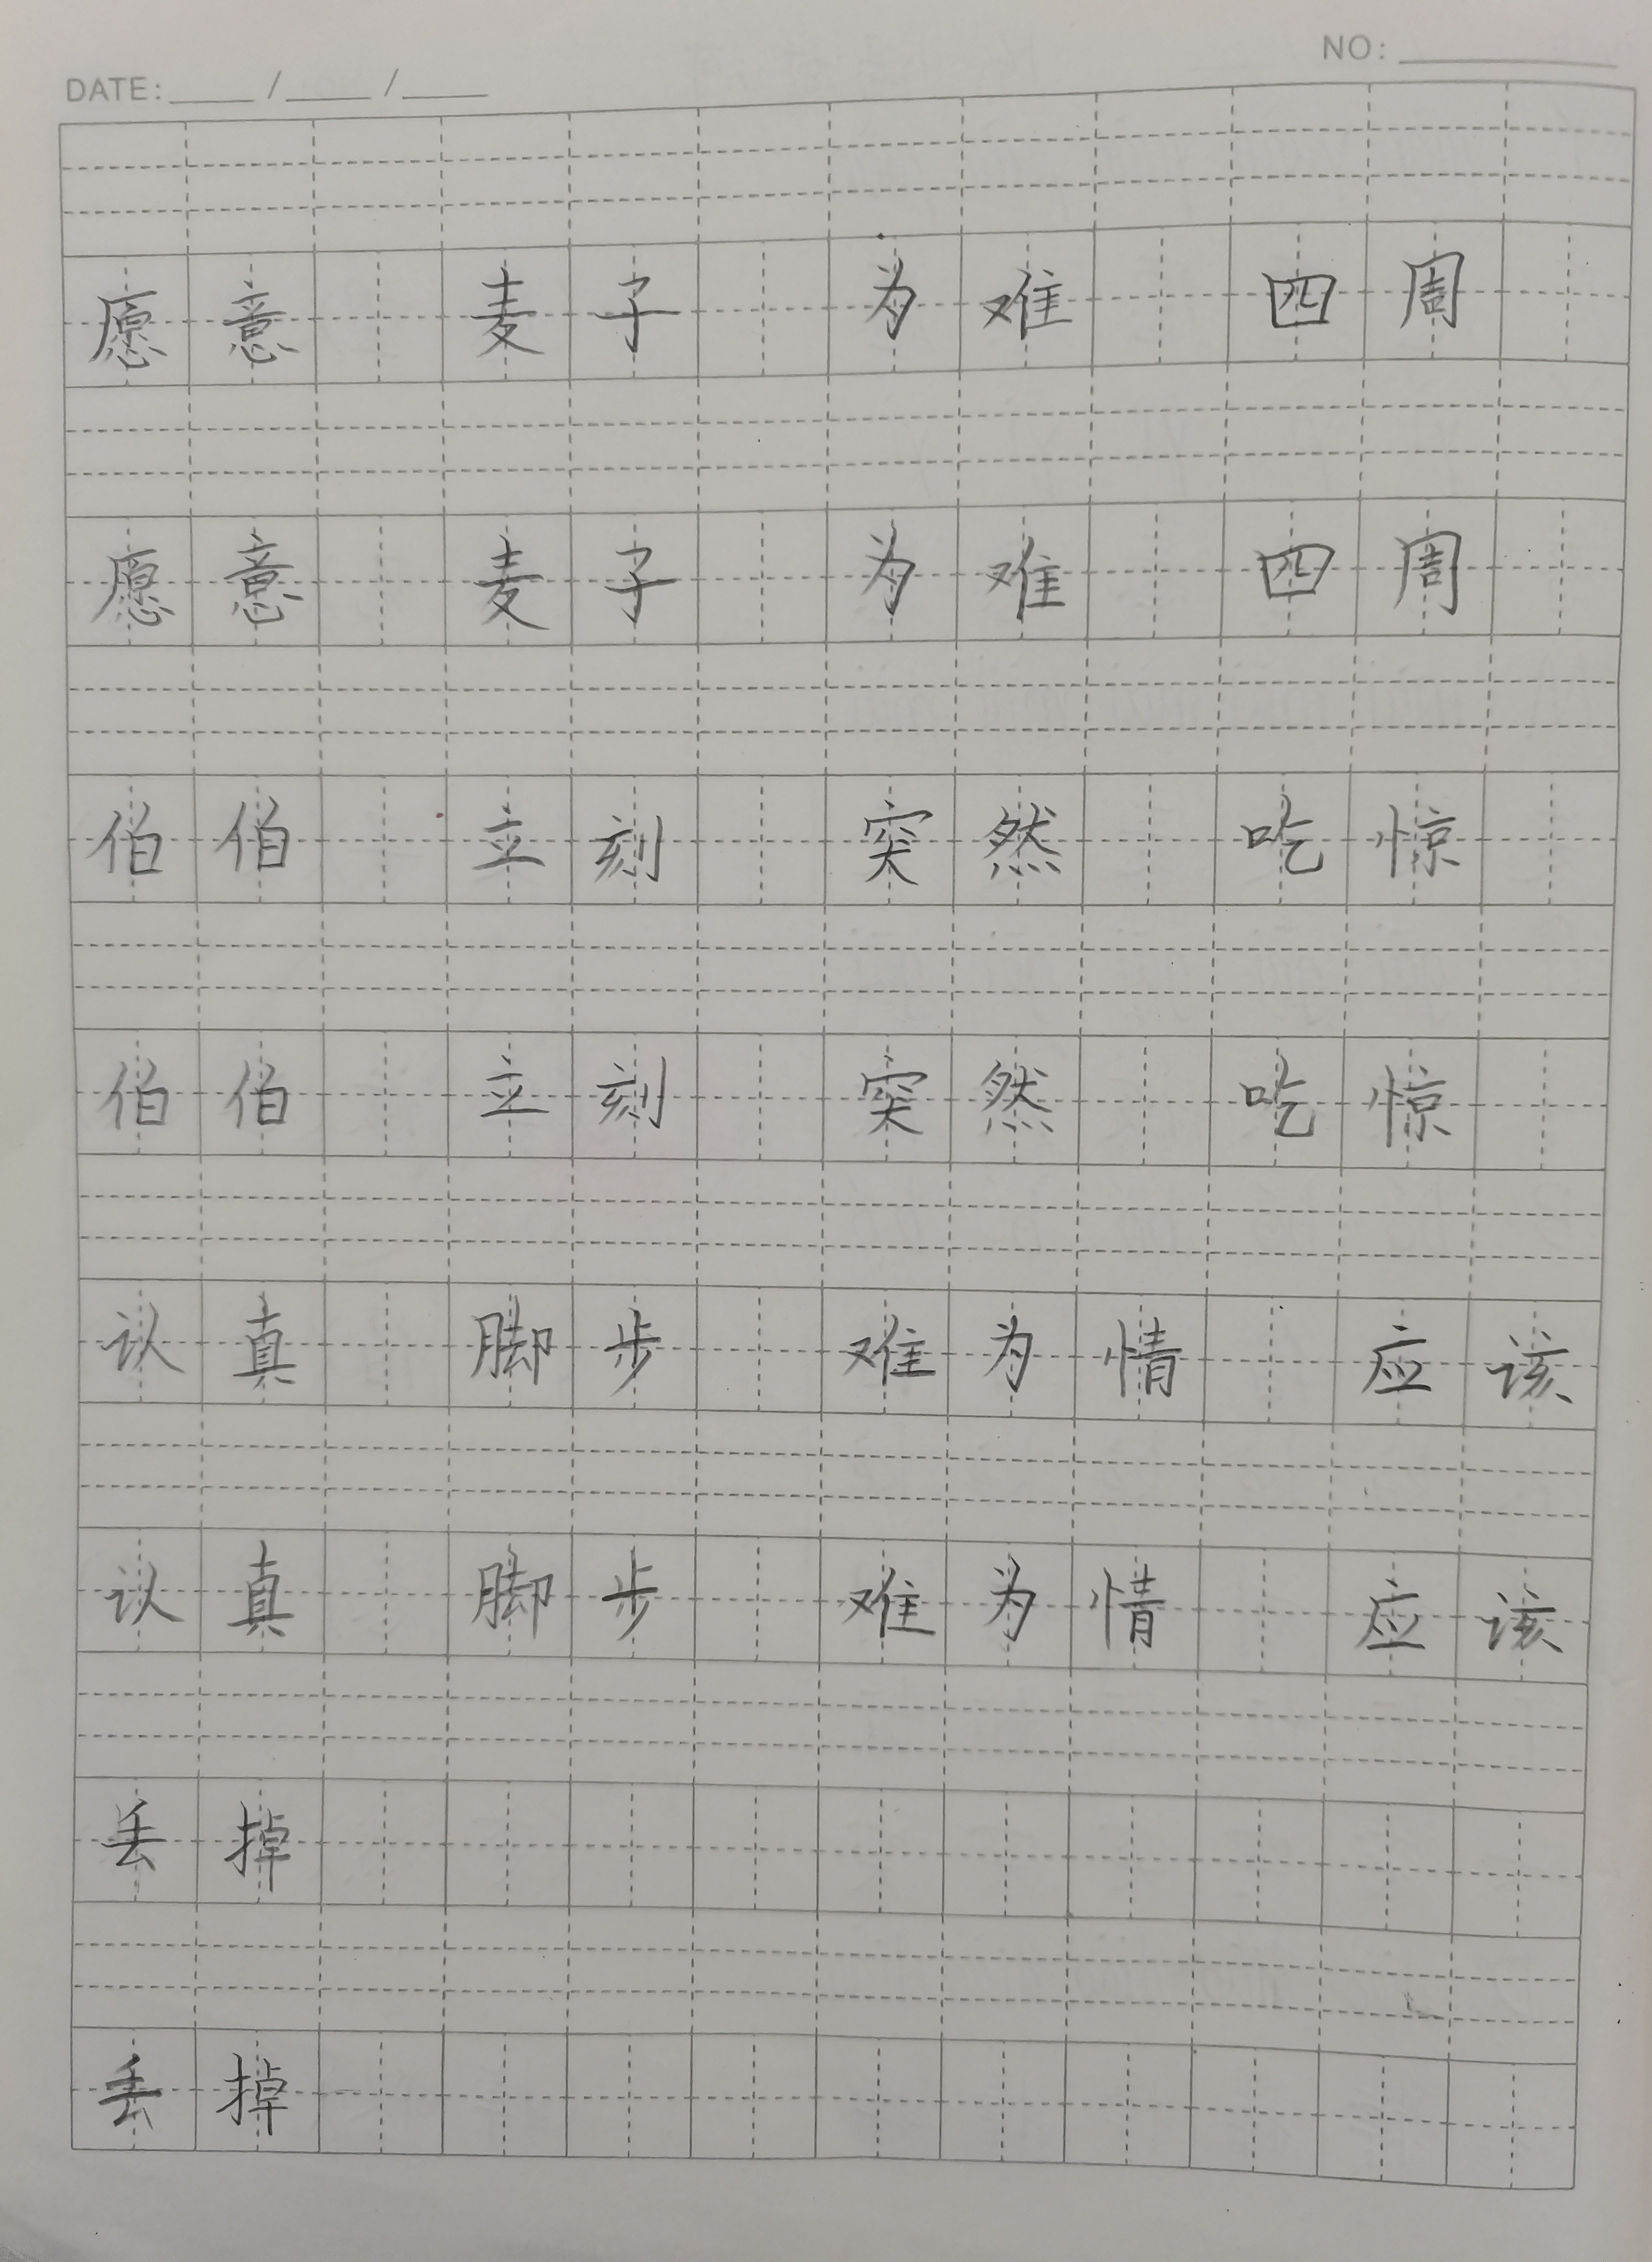 DATE: ____ / ____ / ____ NO: ________
愿意 麦子 为难 四周
愿意 麦子 为难 四周
伯伯 立刻 突然 吃惊
伯伯 立刻 突然 吃惊
认真 脚步 难为情 应该
认真 脚步 难为情 应该
丢掉
丢掉